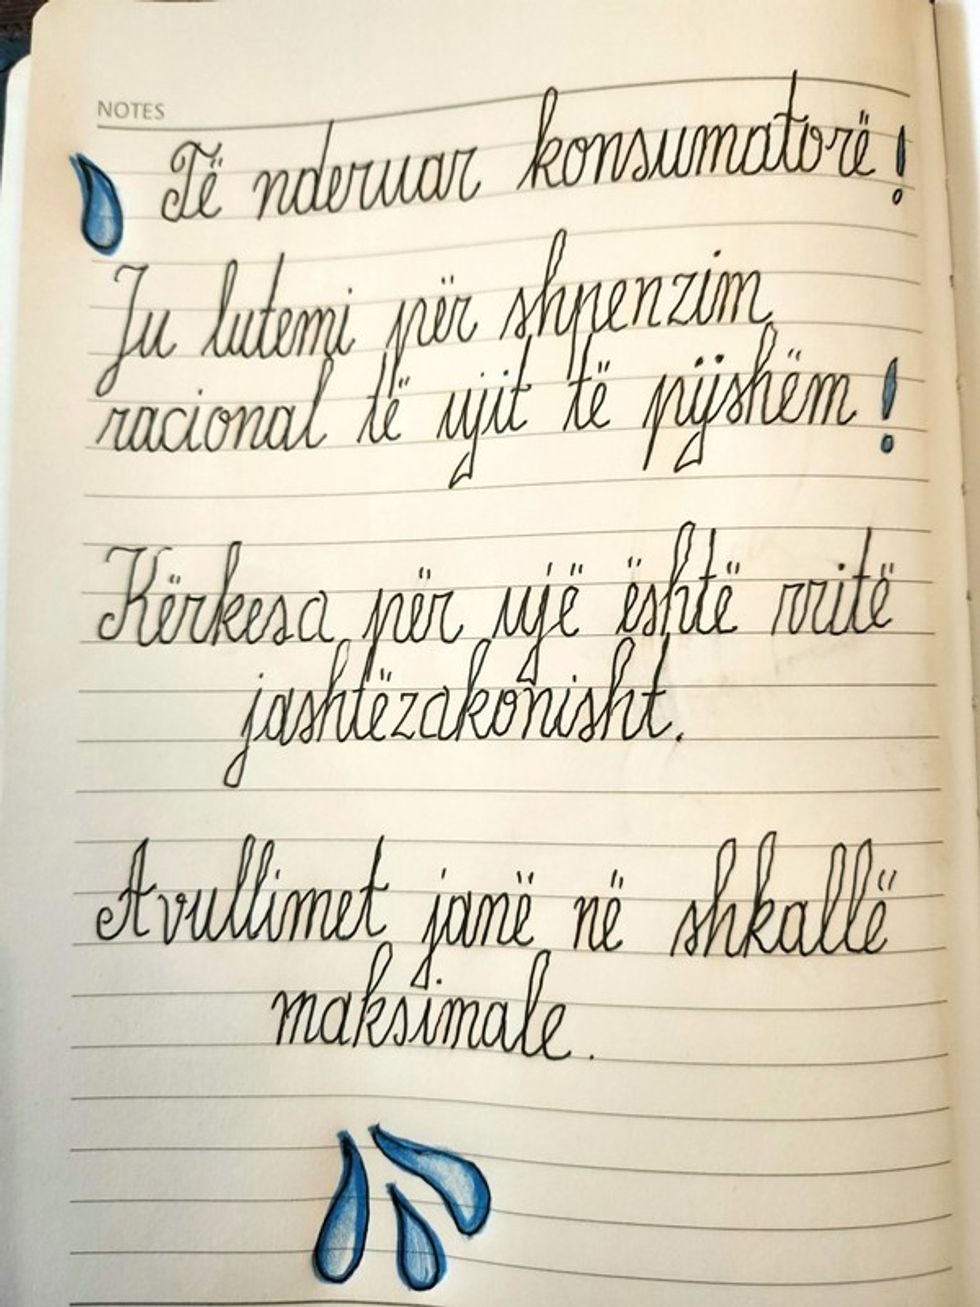 NOTES
Të nderuar konsumatorë!
Ju lutemi për shpenzim
racional të ujit të pijshëm!
Kërkesa për ujë është rritë
jashtëzakonisht.
Avullimet janë në shkallë
maksimale.